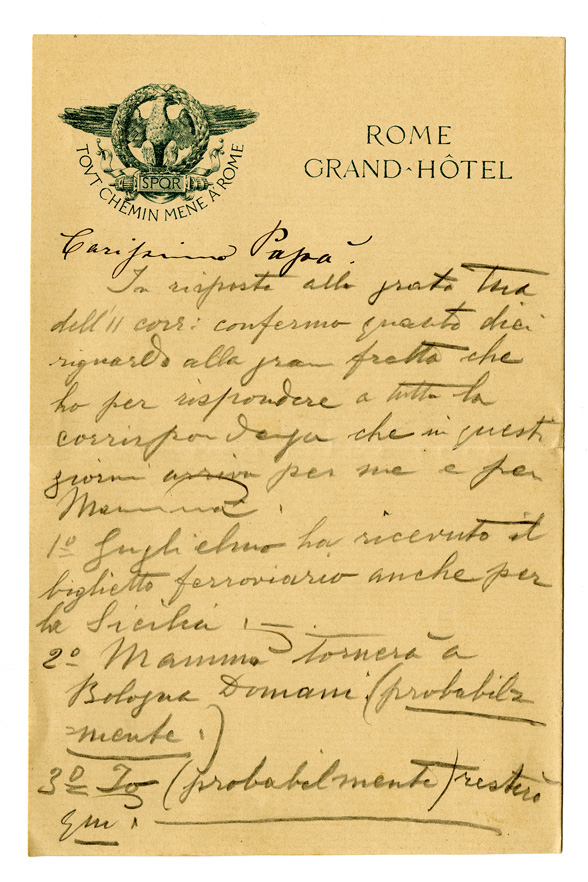 ROME
GRAND-HÔTEL
SPQR
TOVT CHEMIN MENE A ROME
Carissimo Papà.
In risposta alla grata Tua
dell'11 corr: confermo quanto dici
riguardo alla gran fretta che
ho per rispondere a tutta la
corrispondenza che in questi
giorni arriva per me e per
Mamma.
1º Guglielmo ha ricevuto il
biglietto ferroviario anche per
la Sicilia.
2º Mamma tornerà a
Bologna Domani. (probabil=
=mente.)
3º Io (probabilmente) resterò
qui.